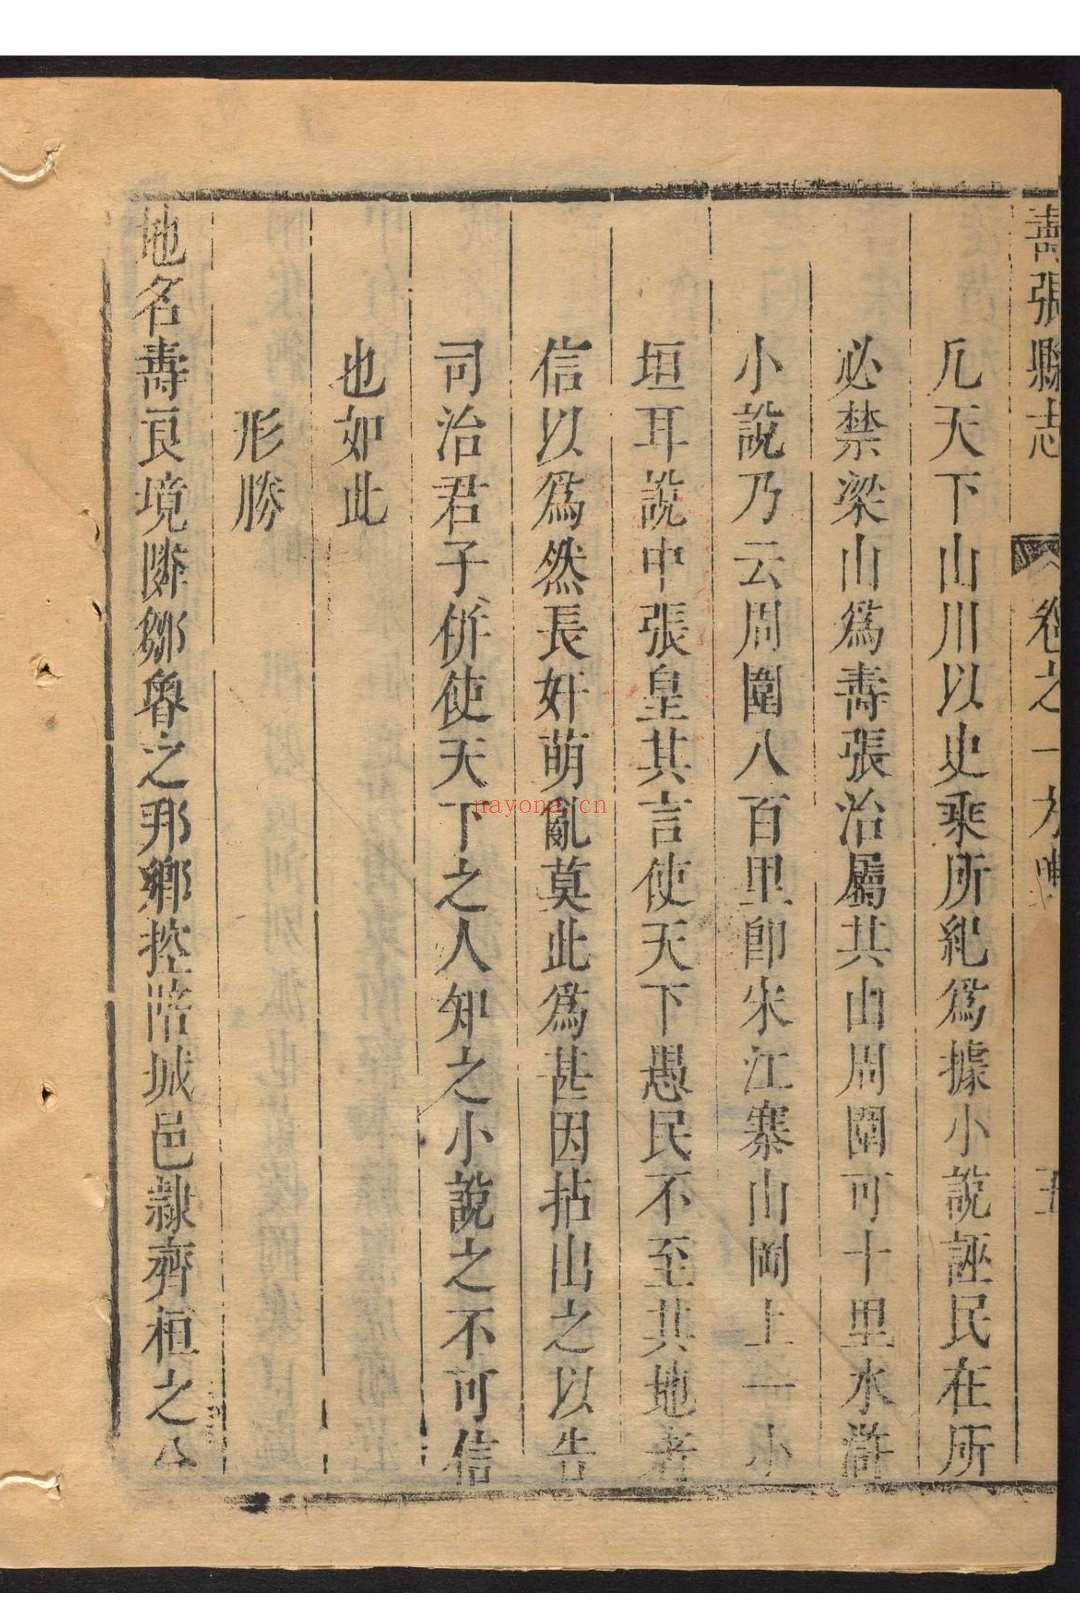 壽張縣志 卷之一方輿 五
凡天下山川以史乘所紀爲據小說誣民在所
必禁梁山爲壽張治屬其山周圍可十里水滸
小說乃云周圍八百里卽宋江寨山岡上一小
垣耳說中張皇其言使天下愚民不至其地者
信以爲然長奸萌亂莫此爲甚因拈出之以告
司治君子俾使天下之人知之小說之不可信
也如此
形勝
地名壽良境隣鄒魯之邦鄉控陪城邑隷齊桓之
nayona.cn